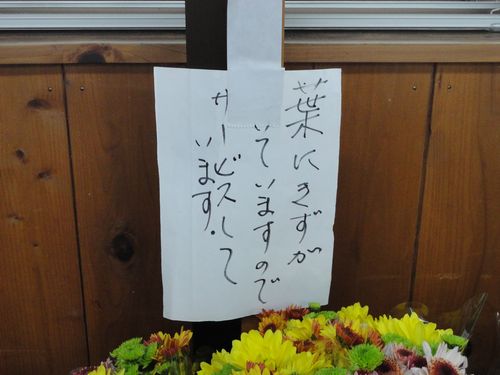 葉にきずが
いていますので
サービスして
います.